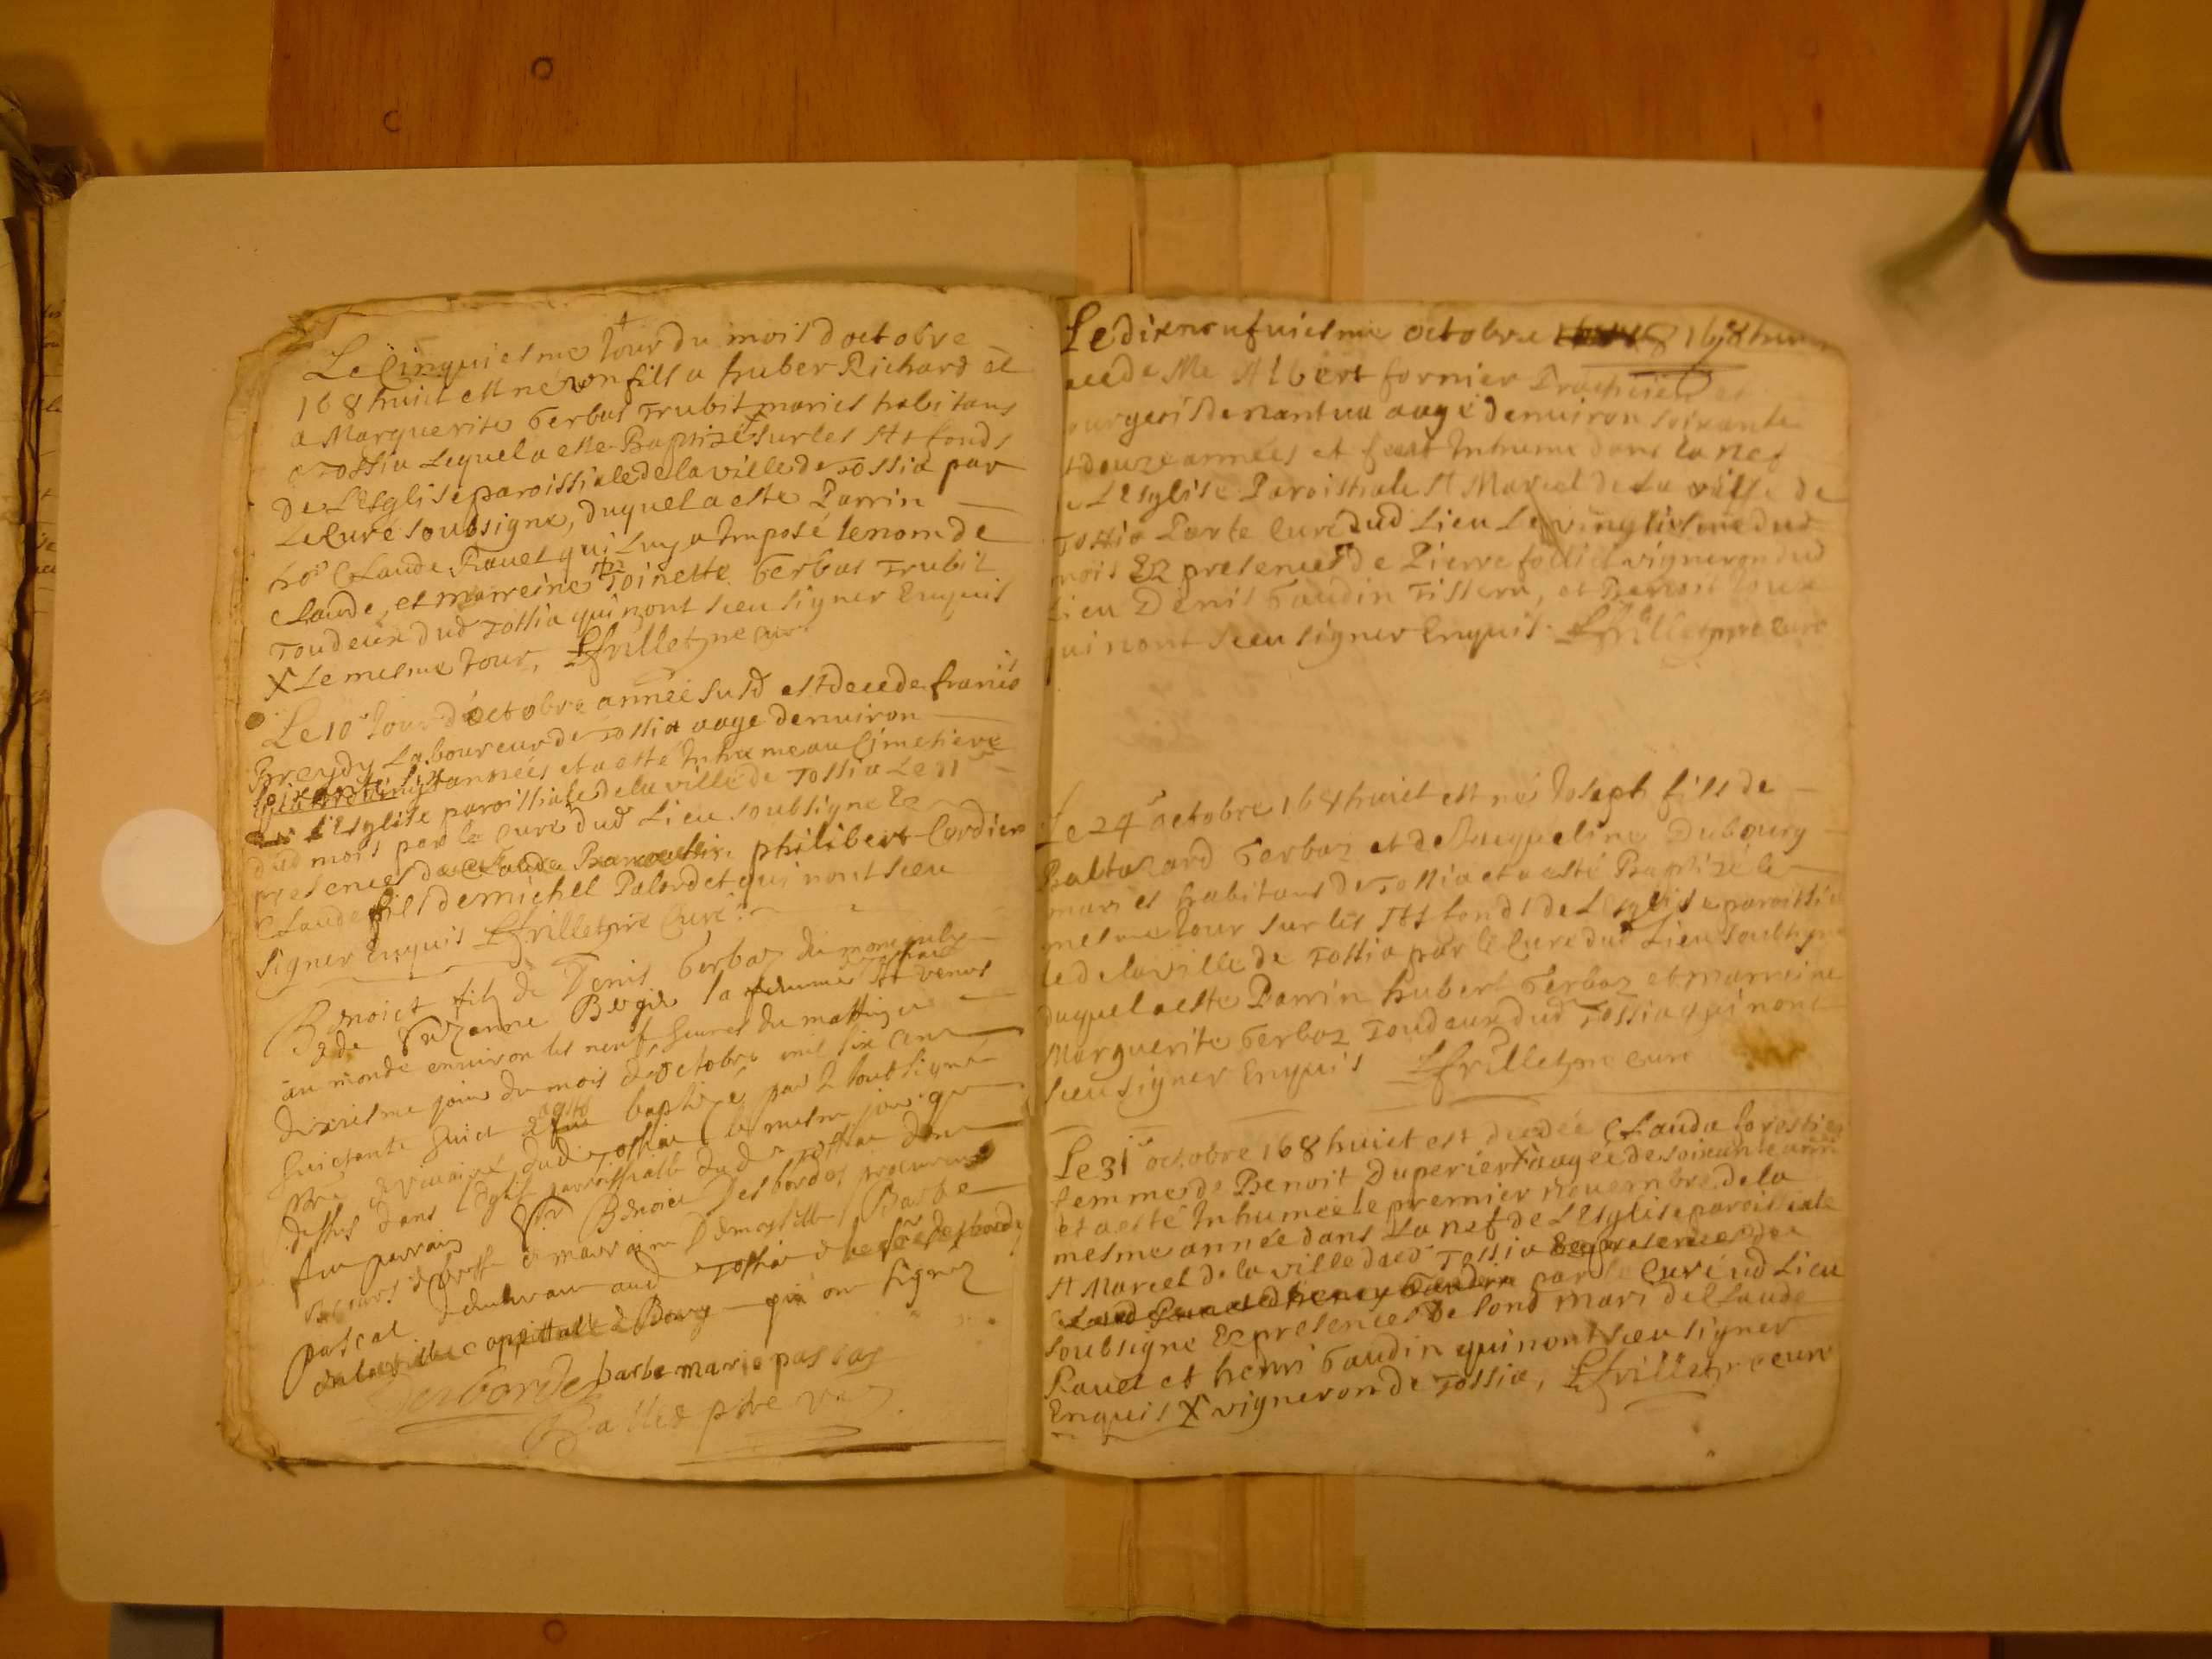 Le Cinquiesme Jour du mois doctobre
168 huict est né un fils a huber Richard et
a Marguerite Gerbas Trubit maries habitans
a Tossia Lequel a esté Baptizé sur les Sts fonds
de LEsglise paroissiale de la ville de Tossia par
Le Curé soubsigne, duquel a este Parrin
Claude Ravet qui Luy a Imposé le nom de
Claude, et marreine Toinette Gerbas Trubit
Toudeux dud Tossia qui nont sceu signer Enquis
X Le mesme Jour, Ffrillet pre Curé
Le 10e Jour doctobre année susd est decede francois
Breydy Laboureur de Tossia aage denuiron
soixante annees et a esté Inhumé au Cimetiere
LEsglise paroissiale de la ville de Tossia Le 11e
dud mois par le Curé dud Lieu soubsigne Ez
presences de Claude philibert Cordier
Claude fils de michel Palordet qui nont sceu
signer Enquis Ffrillet pre Curé
Benoict filz de Denis Gerbaz
& de Suzanne la femme est venus
au monde enuiron les neuf heures du mattin le
dixiesme jour du mois doctobre mil six cent
huictante huict & a esté baptizé par le soubsigné
pbre & vicaire dud Tossia le mesme jour que
dessus dans lEglise parroissialle dud Tossia dont
fut parrain Sr Benoict Desbordes procureur
& marraine Demoyselle Barbe
pascal demeurant aud Tossia & led sr desbordes
en la ville cappitalle de Bourg qui ont signez
Desbordes barbe marie pascal
Ballet pbre vic
Le dixneufuiesme octobre 168 huict
decede Me Albert fornier Praticien et
bourgeois de nantua aagé denuiron soixante
et douze années et feust Inhume dans la nef
de LEsglise Paroissiale St Marcel de La ville de
Tossia Par le Curé dud Lieu Le vingtiesme dud
mois Ez presences de Pierre folliet vigneron dud
Lieu Denis Gaudin Tissera, et Benoit
qui nont sceu signer Enquis. Ffrillet pre Curé
Le 24e octobre 168 huict est né Joseph fils de
Baltazard Gerbaz et de Jacqueline Dubourg
maries habitans de Tossia et a esté Baptizé le
mesme Jour sur les Sts fonds de LEsglise paroissia
le de la ville de Tossia par le Curé dud Lieu soubsigne
duquel a este Parrin hubert Gerbaz et marreine
Marguerite Gerbaz Toudeux dud Tossia qui nont
sceu signer Enquis Ffrillet pre Curé
Le 31e octobre 168 huict est decedée Clauda forestier
femme de Benoit Duperier X aagée de soixante années
et a esté Inhumée le premier nouembre de la
mesme année dans La nef de LEsglise paroissiale
St Marcel de la ville dud Tossia Ez presences de
Claud Ravet henry Gaudin par le Curé ud Lieu
soubsigne Ez presences de sond mari de Claude
Ravet et henri Gaudin qui nont sceu signer
Enquis X vigneron de Tossia, Ffrillet pre Curé